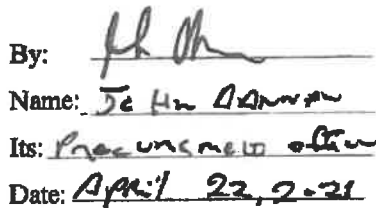 By:
Name: John
Its: Procurement officer
Date: April 22, 2021